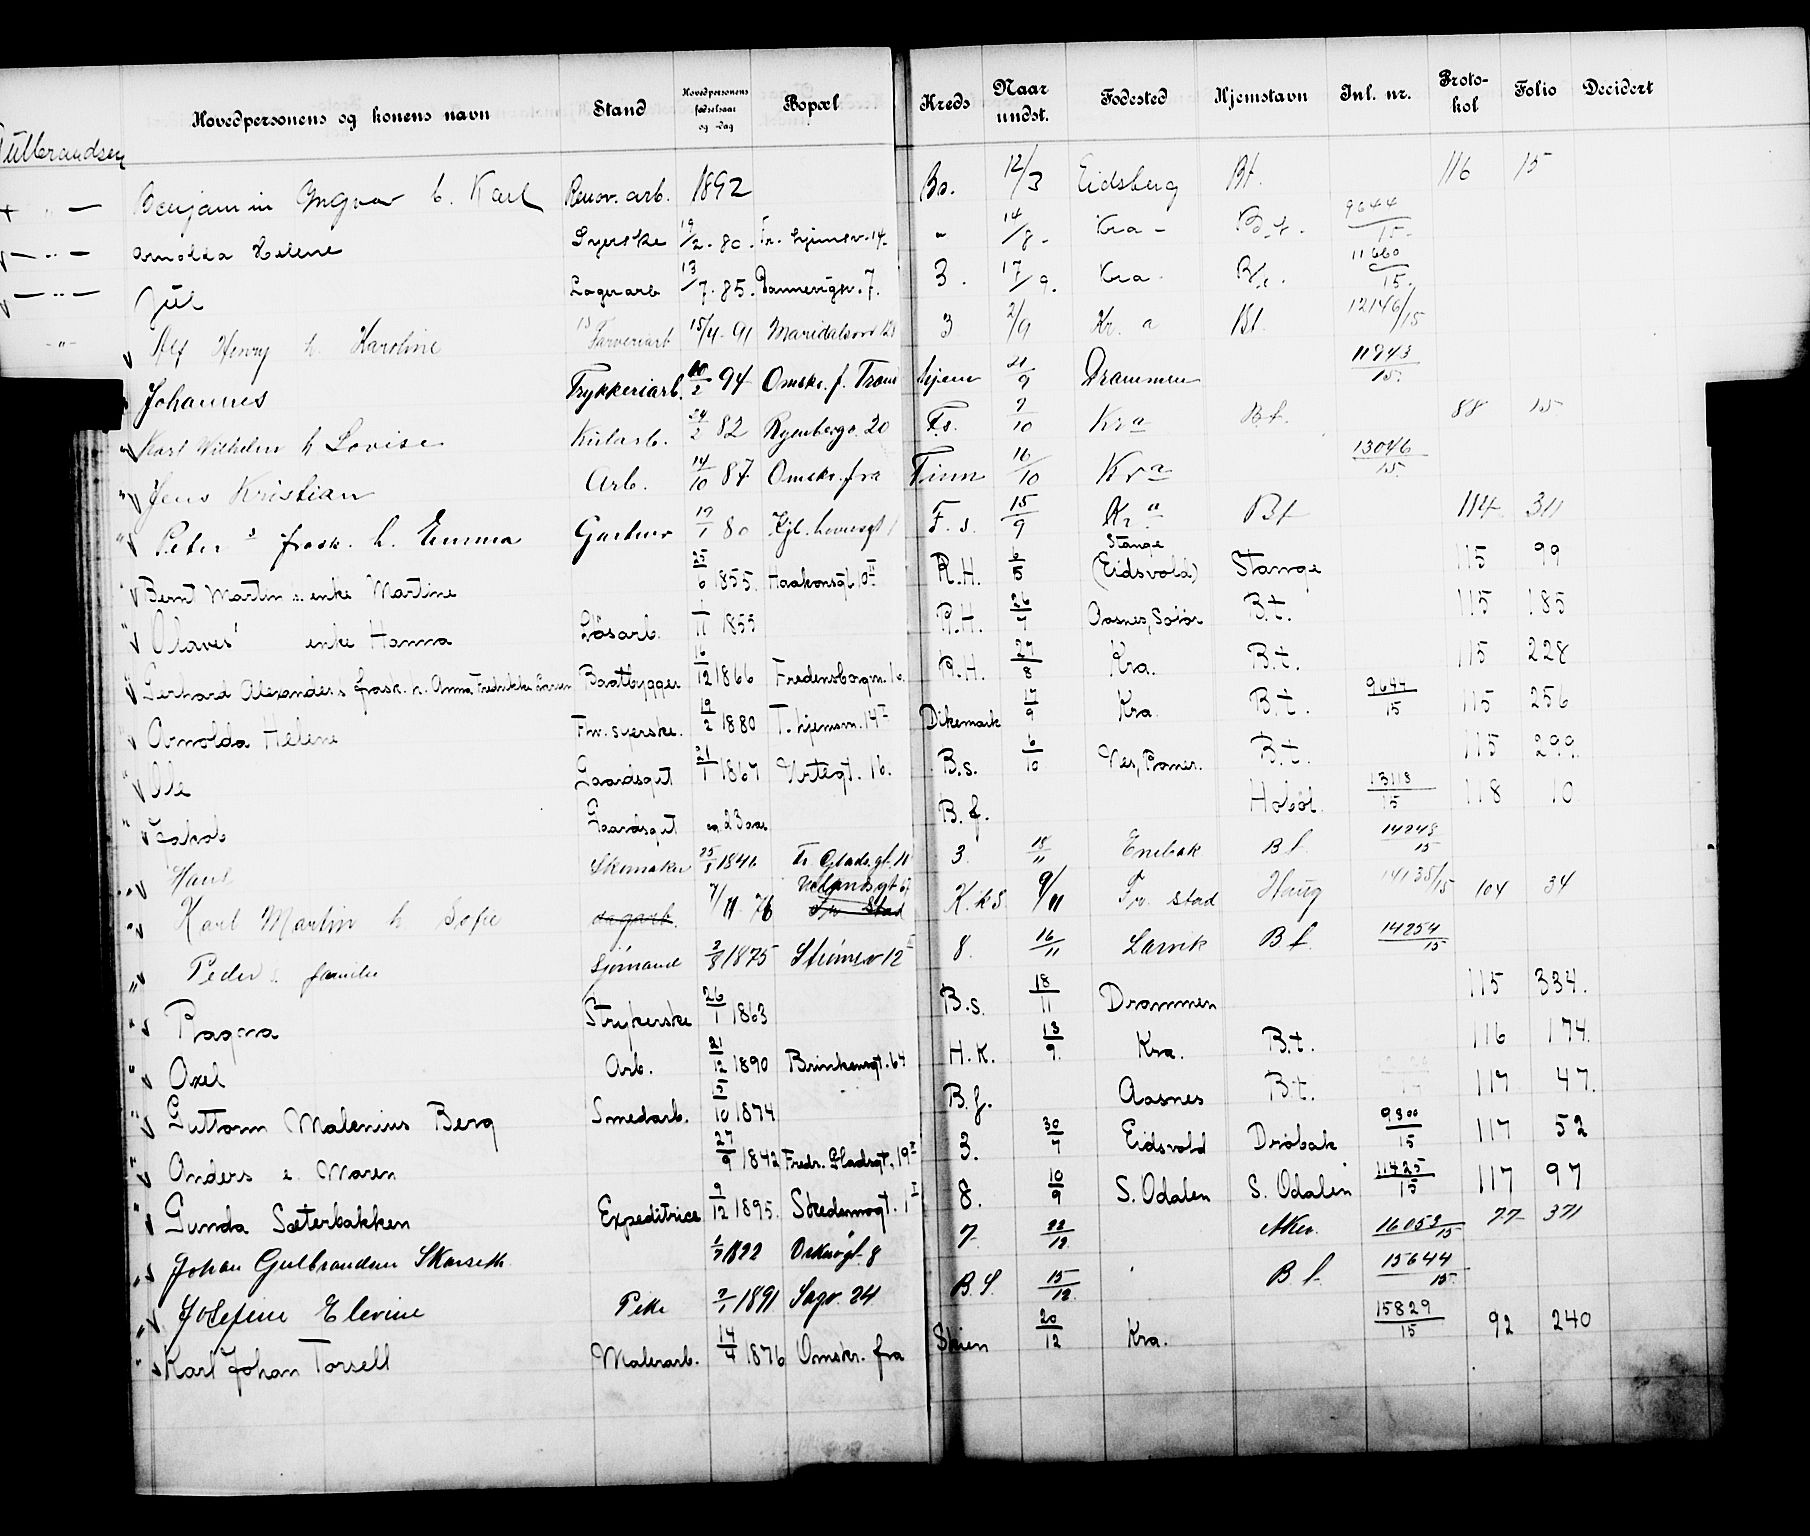 Hovedpersonens og konens navn Stand Hovedpersonens fødselsaar og -dag Bopæl Kreds Naar undst. Fødested Hjemstavn Inl. nr. Protokol Folio Decidert
Gulbrandsen
Benjamin Yngvar h. Karl Renov. arb. 1892 Bs. 12/3 Eidsberg Bt. 116 15
Arnolda Helene Syerske 19/2 - 80. Tr. hjemsv. 14 " 14/8 - Kra - B.t. 9644/15
Jul Lagerarb 13/7. 85. Dannevigsv. 7. 3. 17/9. Kra. B.t. 11660/15.
Alf Henry h. Karoline Farveriarb 15/4. 91 Maridalsvei 3 2/9 Kr. a Bt. 12146/15
Johannes Trykkeriarb. 20/2 94 Omskr. f. Trond hjem 21/9 Drammen 11943/15.
Karl Wilhelm h Lovise Kularb. 24/2 82 Ryenbergv. 20 F.s. 7/10 Kra Bt. 88 15
Jens Kristian Arb. 14/10 87 Omskr. fra Tinn 16/10 Kra 13046/15.
Peter s frask. h. Emma Gartner 19/1 80 F. s. 15/9 Kr.a Bt 114 311
Bernt Martin s. enke Martine 25/6 1855. Haakonsgt. 10 II R.H. 6/5 Stange (Eidsvold) Stange 115 99
Olaves' enke Hanna Løsarb. 1/11 1855 R.H. 26/7 Aasnes, Solør B.t. 115 185
Gerhard Alexanders frask. h. Anna Fredrikke Larsen Baatbygger 16/12 1866 Fredensborgv. R.H. 27/8 Kra. B.t. 115 228
Arnolda Helene Frv. syerske. 19/2 1880 T. hjemsv. 14 I Dikemark 17/9 Kra. B.t. 9644/15 115 256
Ole Gaardsgut 21/1 1867 Urtegt. 16. B.s. 6/10 Nes, Romer. B.t. 115 299.
Jakob Gaardsgut ca. 23 aar B.f. Hobøl. 13113/15 118 10
Hans Skomaker 25/8 1846 Fr. Glads. gt. 18 3. 18/11 Enebak Bt. 14248/15
Karl Martin h Sofie dagarb. 7/11. 76 Fr. stad K.k.S 9/11 Fr. stad Haug 14135/15 104 34
Peder s. familie Sjømand 2/8 1875 Strømsv 12 II 8. 16/11 Larvik Bt. 14254/15
Ragna Strykerske 26/1 1863 B.s. 18/11 Drammen 115 334.
Axel Arb. 21/12 1890 Brinkensgt. 64 H.K. 13/9. Kra. B.t. 116 174.
Guttorm Malenius Berg Smedarb. 5/10 1874 B.f. Aasnes B.t. 117 47.
Anders e. Maren 27/9 1842 Fredr. Gladsgt. 19 I 3. 30/7 Eidsvold Drøbak 9300/15 117 52
Gunda Sæterbakken Expeditrice 9/12 1895. Skedsmogt. 1 I 8. 10/9 S. Odalen S. Odalen 11425/15 117 97
Johan Gulbrandsen Skarseth 7. 22/12 Aker. 16053/15 77 371
Josefine Elevine Pike 2/1 1891 Sagv. 24 B.S. 15/12 B t. 15644/15
Karl Johan Torsell Malerarb. 14/4 1876 Omskr. fra Skien 20/12 Kra. 15829/15 92 240